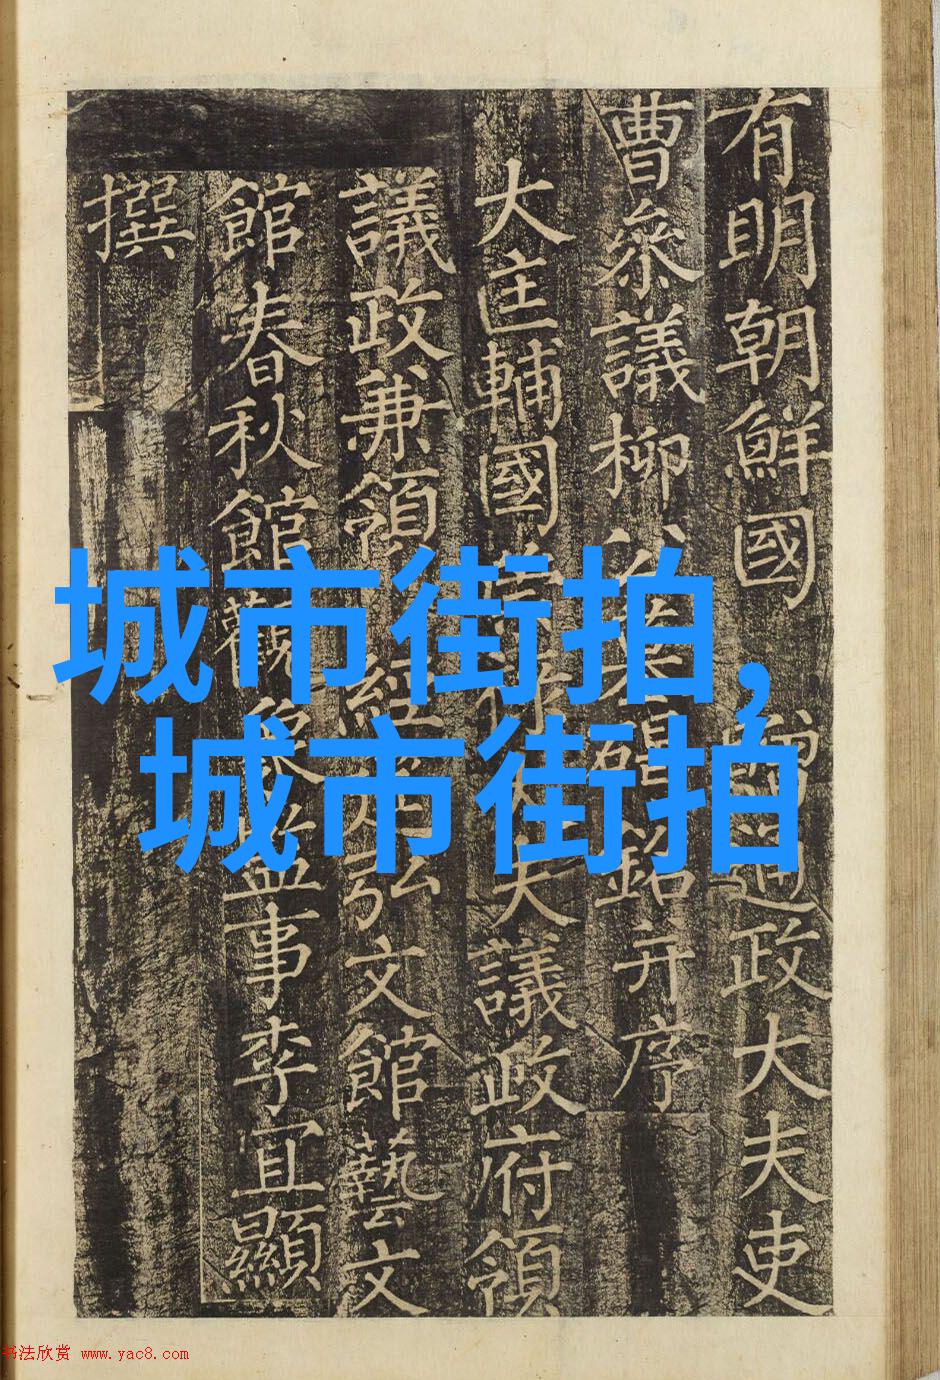 有明朝鮮國 贈通政大夫吏
曹參議柳公墓碣銘并序
大匡輔國崇祿大夫議政府領
議政兼領 經筵弘文館藝文
館春秋館觀象監事李宜顯
撰
城市街拍,
城市街拍
书法欣赏 www.yac8.com